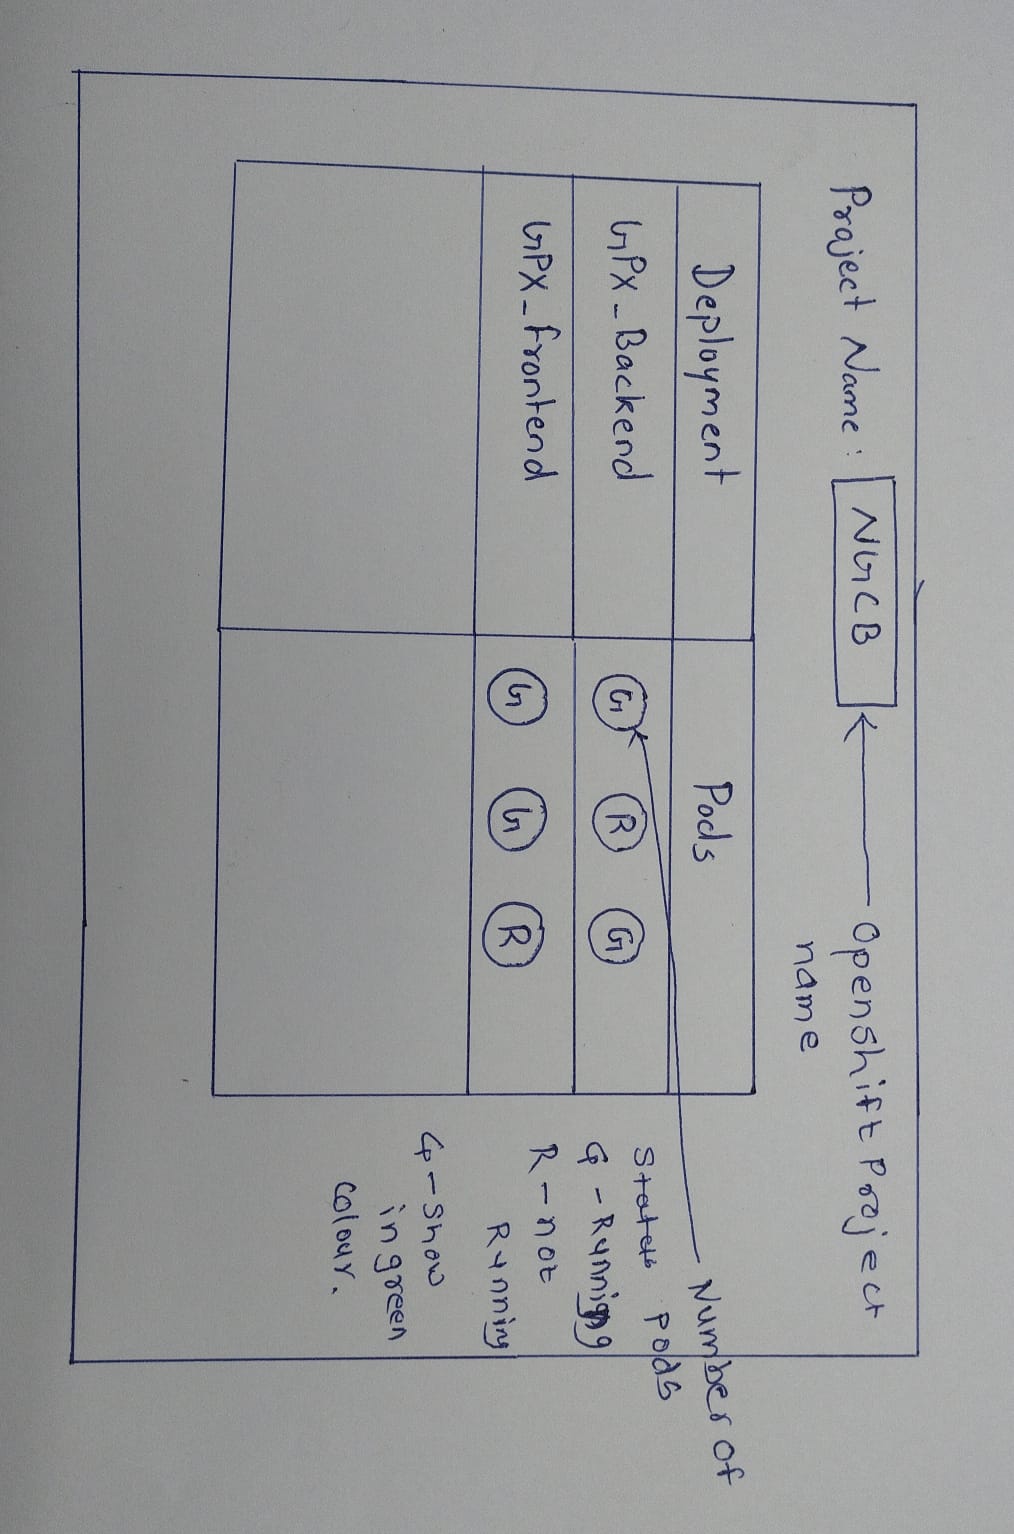 Project Name: NGCB
Openshift Project
name
Deployment
Pods
GPX_Backend
G R G
GPX_frontend
G G R
Number of
Pods
Status
G - Running
R - not
Running
G - Show
in green
colour.